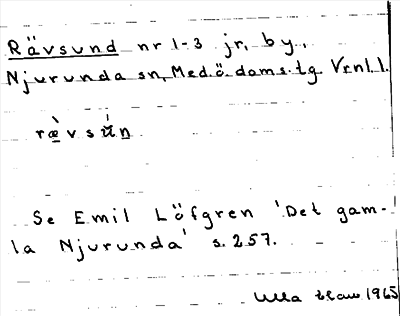 Rävsund nr 1-3 jr, by,
Njurunda sn, Med.ö.doms.tg. Vrnl.l.
ræ̀vsúṇ
Se Emil Löfgren 'Det gam-
la Njurunda' s. 257.
Ulla 1965